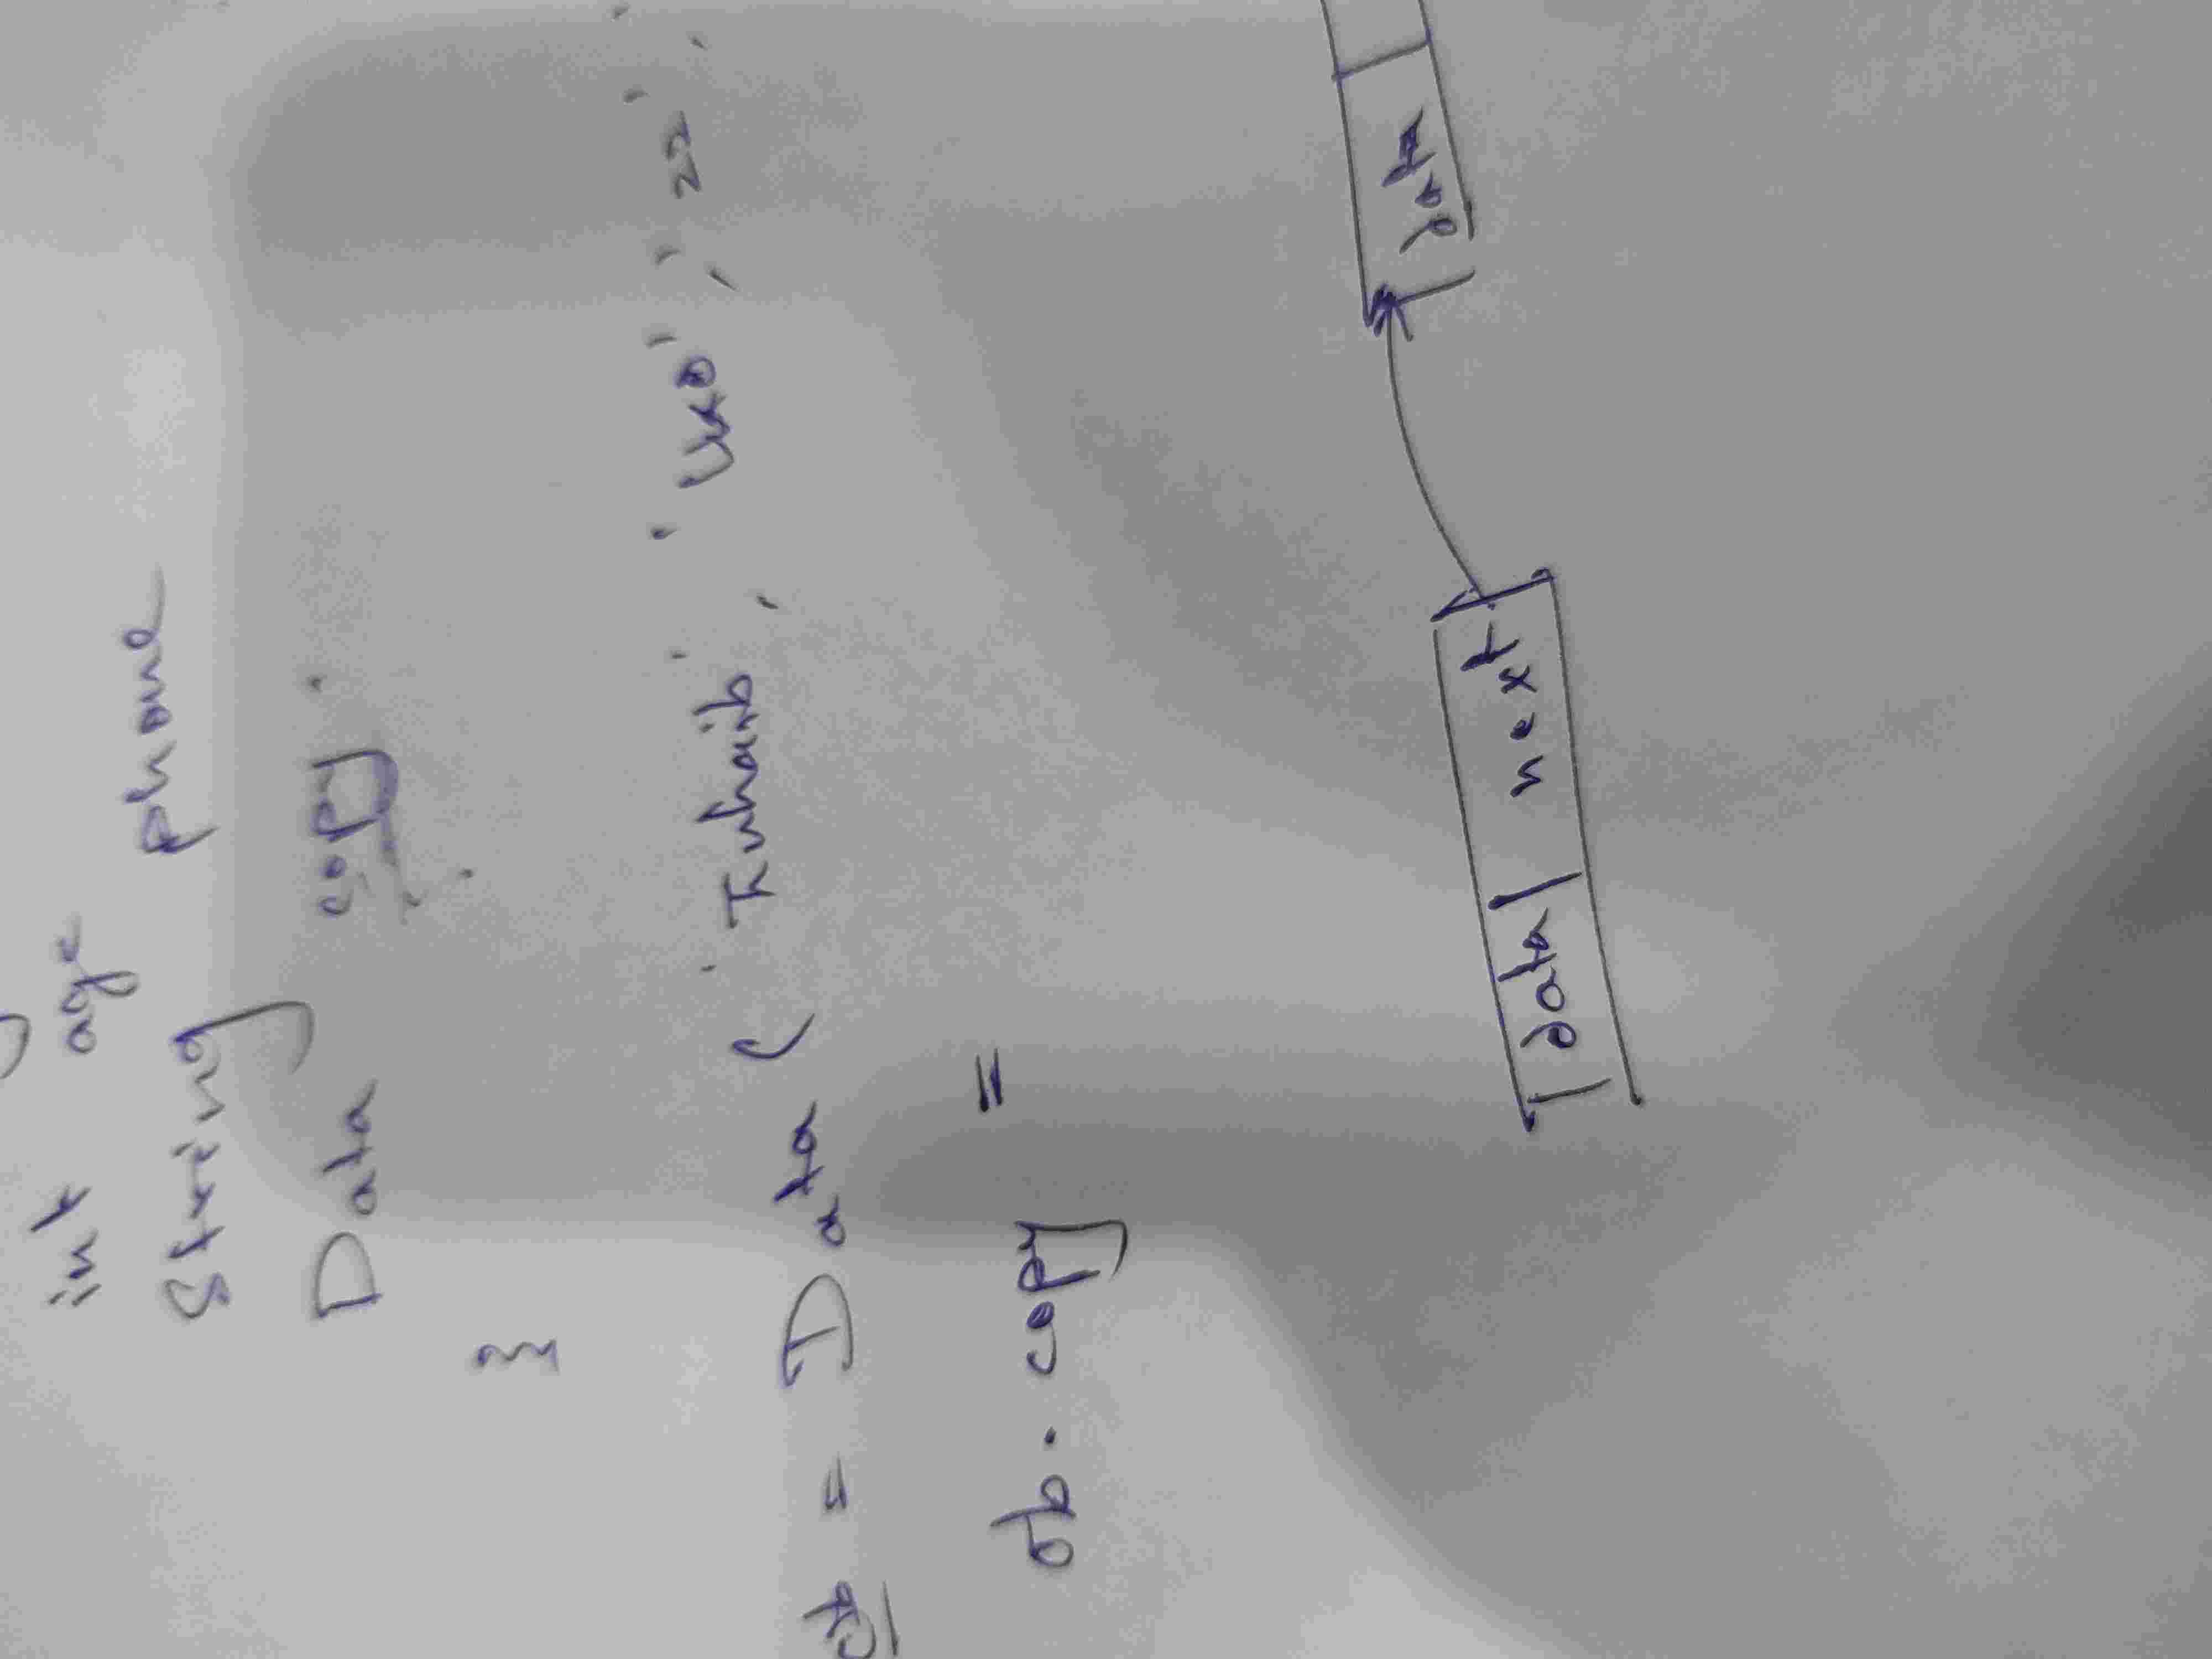 int age
String phone
Data copy .
}
ob = Data ( ' Kuhaib ' , ' UKO ' , ' 22 ' ,
ob . copy =
data | next
data